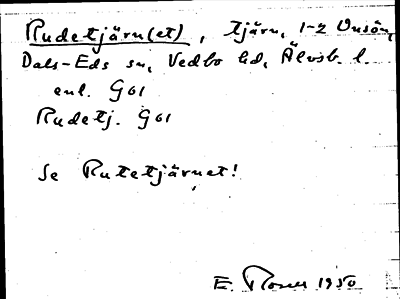 Rudetjärn(et), tjärn, 1-2 Onsön,
Dals-Eds sn, Vedbo hd, Älvsb. l.
enl. G61
Rudetj. G61
Se Rutetjärnet!
E. 1950